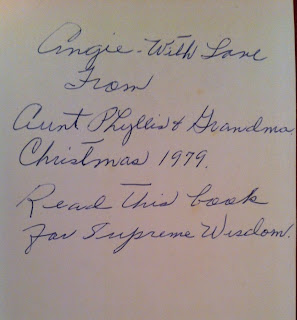 Angie - With Love
From
Aunt Phyllis & Grandma
Christmas 1979.
Read This book
For Supreme Wisdom.